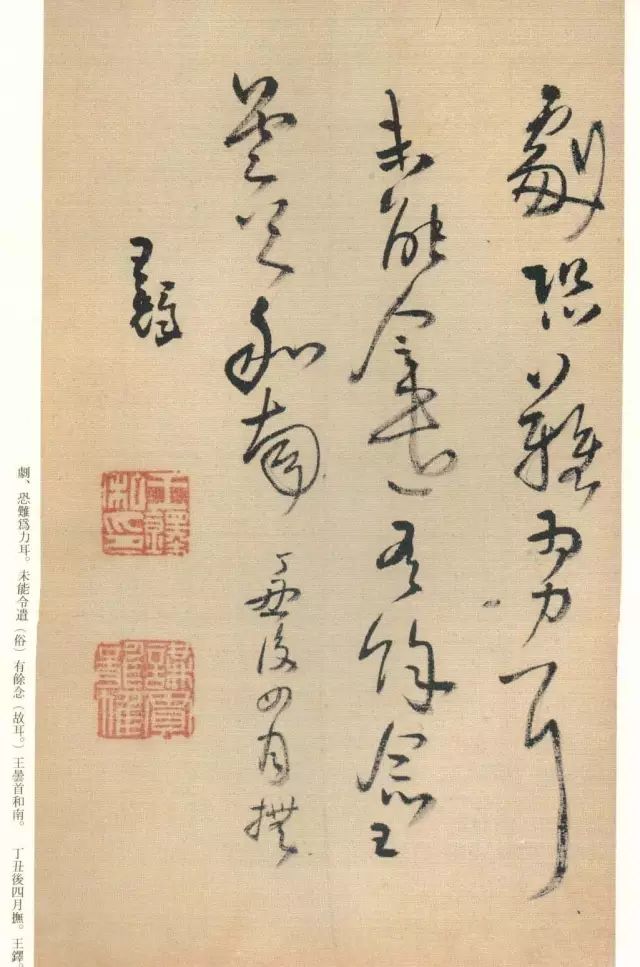 劇恐難爲力耳
未能令遣有餘念王
曇首和南 丁丑後四月撫
王鐸
王鐸私印
劇、恐難爲力耳。未能令遣（俗）有餘念（故耳。）王曇首和南。 丁丑後四月撫。王鐸。